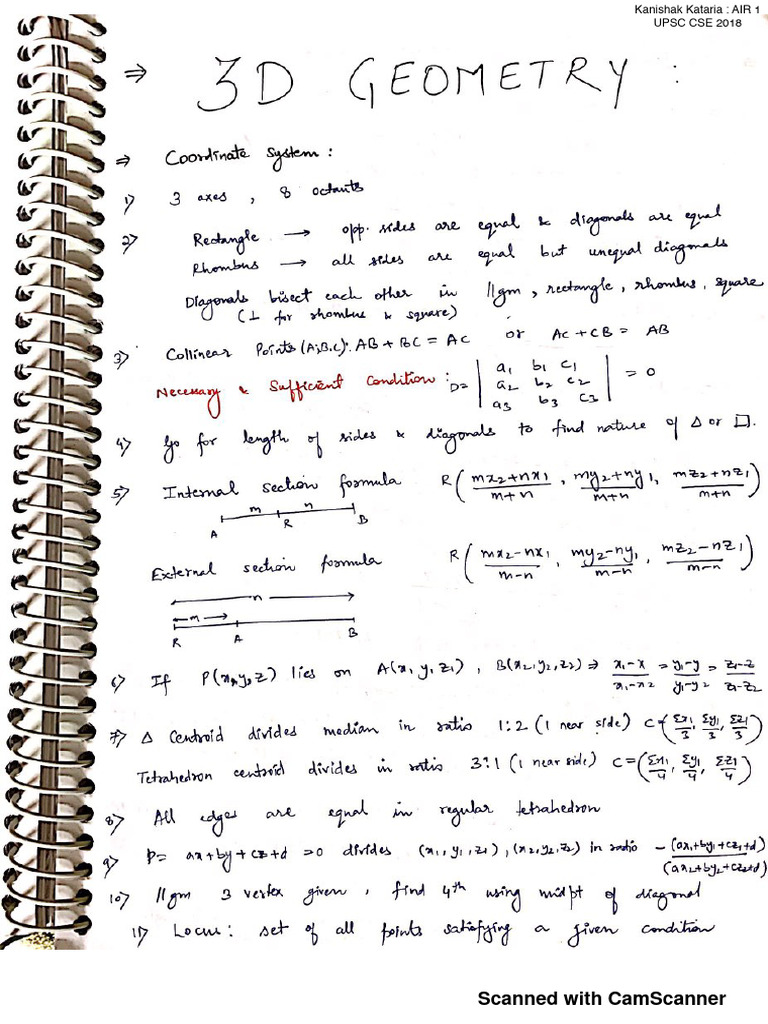 Kanishak Kataria : AIR 1
UPSC CSE 2018
⇒ 3D GEOMETRY :
⇒ Coordinate System :
1) 3 axes , 8 octants
2) Rectangle → opp. sides are equal & diagonals are equal
Rhombus → all sides are equal but unequal diagonals
Diagonals bisect each other in ||gm, rectangle, rhombus, square
(⊥ for rhombus & square)
3) Collinear Points (A,B,C): AB + BC = AC or AC + CB = AB
Necessary & Sufficient Condition : D = | a1 b1 c1 |
| a2 b2 c2 | = 0
| a3 b3 c3 |
4) Go for length of sides & diagonals to find nature of Δ or □.
5) Internal section formula R( (mx2+nx1)/(m+n) , (my2+ny1)/(m+n) , (mz2+nz1)/(m+n) )
m n
A R B
External section formula R( (mx2-nx1)/(m-n) , (my2-ny1)/(m-n) , (mz2-nz1)/(m-n) )
n
m
R A B
6) If P(x,y,z) lies on A(x, y, z1) , B(x2, y2, z2) ⇒ (x1-x)/(x1-x2) = (y1-y)/(y1-y2) = (z1-z)/(z1-z2)
7) Δ Centroid divides median in ratio 1:2 (1 near side) C = (Σx1/3, Σy1/3, Σz1/3)
Tetrahedron centroid divides in ratio 3:1 (1 near side) C = (Σx1/4, Σy1/4, Σz1/4)
8) All edges are equal in regular tetrahedron
9) P = ax+by+cz+d = 0 divides (x1, y1, z1) , (x2, y2, z2) in ratio -(ax1+by1+cz1+d)/(ax2+by2+cz2+d)
10) ||gm 3 vertex given, find 4th using midpt of diagonal
11) Locus : set of all points satisfying a given condition
Scanned with CamScanner